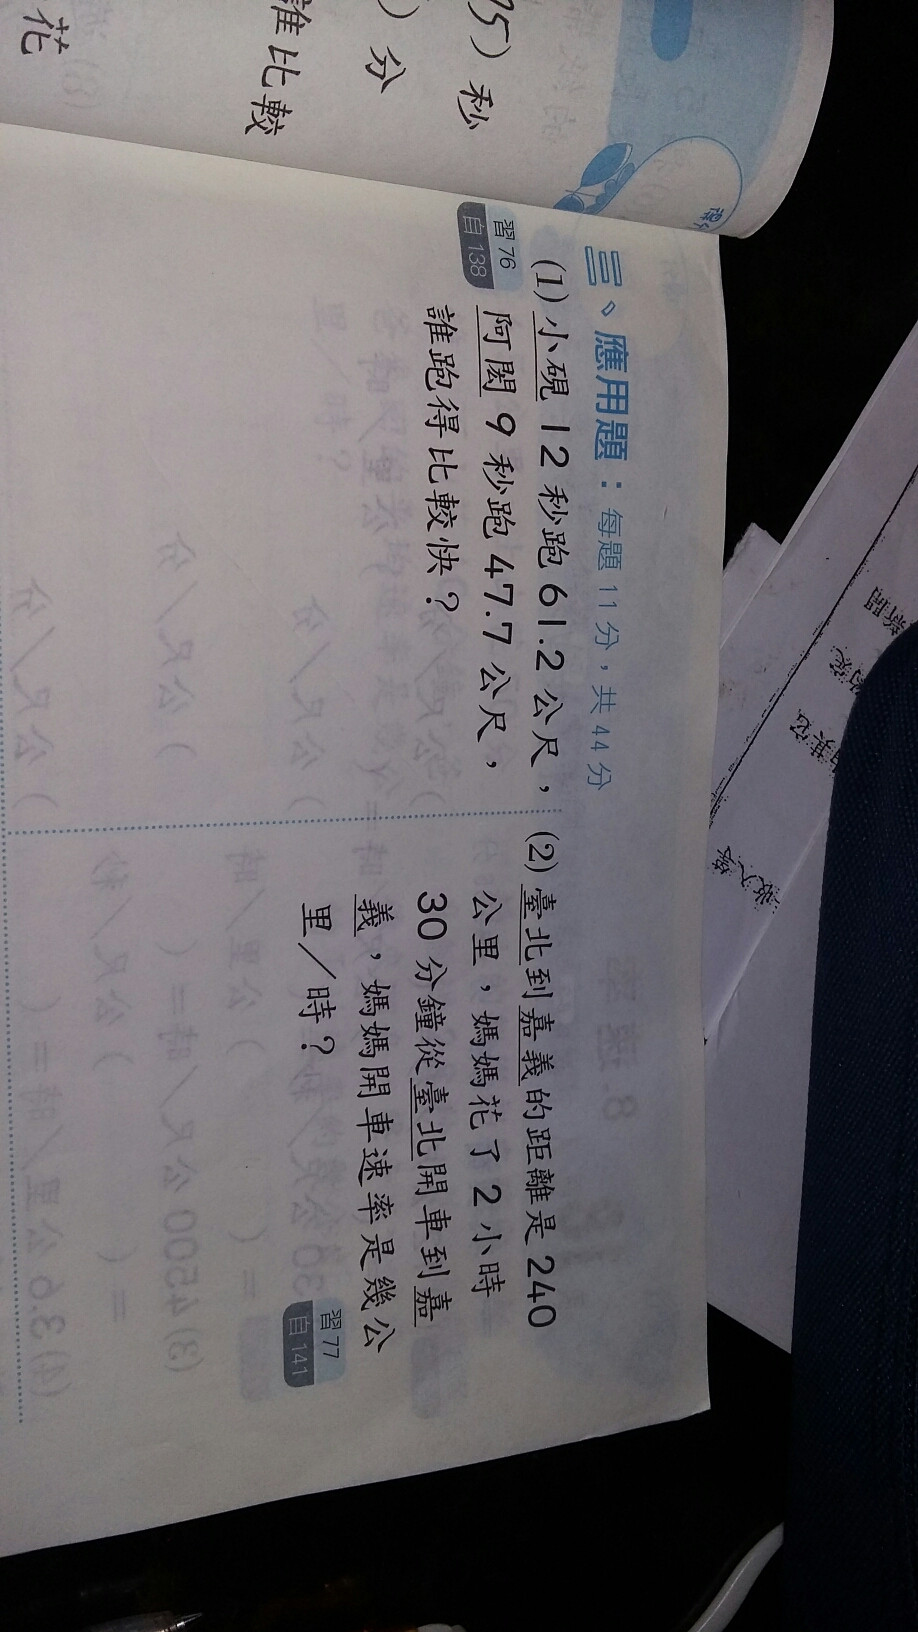 三、應用題：每題 11 分，共 44 分
(1) 小硯 12 秒跑 61.2 公尺，
阿閎 9 秒跑 47.7 公尺，
誰跑得比較快？
習 76
自 138
(2) 臺北到嘉義的距離是 240
公里，媽媽花了 2 小時
30 分鐘從臺北開車到嘉
義，媽媽開車速率是幾公
里／時？
習 77
自 141
75) 秒
) 分
誰比較
花